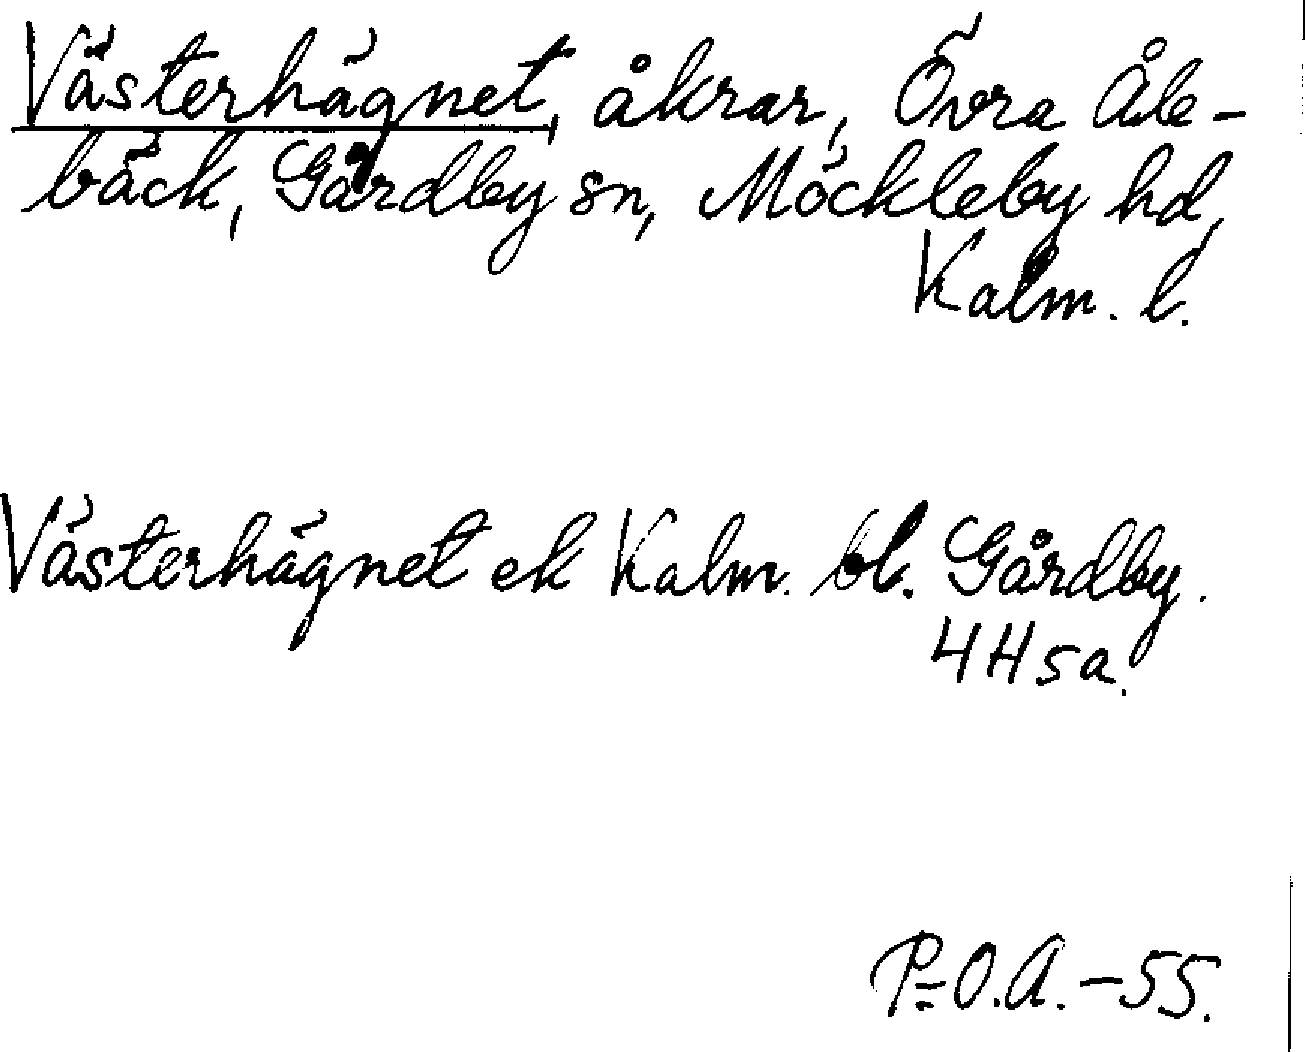 Västerhägnet, åkrar, Övra Åle-
bäck, Gårdby sn, Möckleby hd,
Kalm. l.
Västerhägnet ek Kalm. bl. Gårdby.
4H5a.
P=O.A.-55.